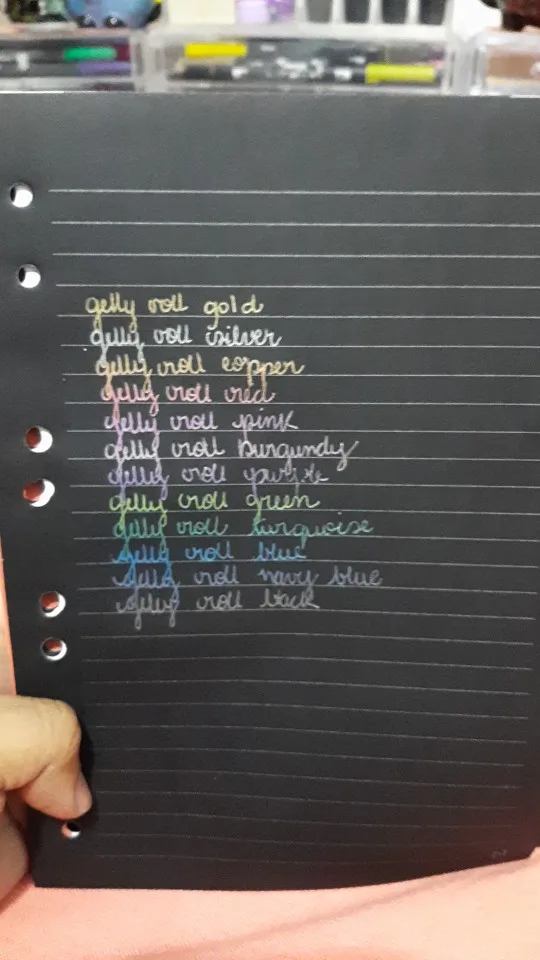 gelly roll gold
gelly roll silver
gelly roll copper
gelly roll red
gelly roll pink
gelly roll burgundy
gelly roll purple
gelly roll green
gelly roll turquoise
gelly roll blue
gelly roll navy blue
gelly roll black